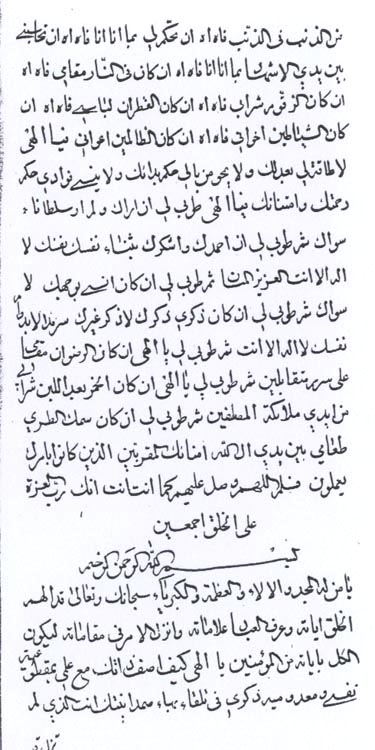 من الذنب في الذنب فاه اه ان تحكم لي بما انا انا فاه اه ان تحاسبني
بين يدي الاشهاد بما انا انا فاه اه ان كان في النار مقامي فاه اه
ان كان الزقوم شرابي فاه اه ان كان القطران لباسي فاه اه ان
كان الشياطين اخواني فاه اه ان كان الظالمين اعواني فيا الهي
لا طاقة لي بعدلك ولا يحو من بالي حكم بدائك ولا ينسي فؤادي حكم
رحمتك وامتنانك فيا الهي طوبى لي ان اراك ولم ار سلطانا
سواك ثم طوبى لي ان احمدك واشكرك بثناء نفسك نفسك لا
اله الا انت العزيز المتعال ثم طوبى لي ان كان انسي بوجهك لا
سواك ثم طوبى لي ان كان ذكري ذكرك لا ذكر غيرك سرمد الابد
نفسك لا اله الا انت ثم طوبى لي يا الهي ان كان الرضوان مقامي
على سرر متقابلين ثم طوبى لي يا الهي ان كان الخمر بعد اللبن شرابي
من ايدي ملائكة المطهرين ثم طوبى لي ان كان سمك الطري
طعامي بين يدي ال الله امنائك المقربين الذين كانوا بامرك
يعملون فلله اللهم وصل عليهم كما انت انت انك رب العزة
على الخلق اجمعين
بسم الله الرحمن الرحيم
يا من له المجد والالاء والعظمة والكبرياء سبحانك وتعاليت قد الهمت
الخلق اياته وعرف العباد علاماته وانزل الامر في مقاماته ليكون
الكل باياته من المؤمنين يا الهي كيف اصفك اتك مع علمي بمقطوع
نفسي ومعدومية ذكري في تلقاء بهاء صمدانيتك انت الذي لم